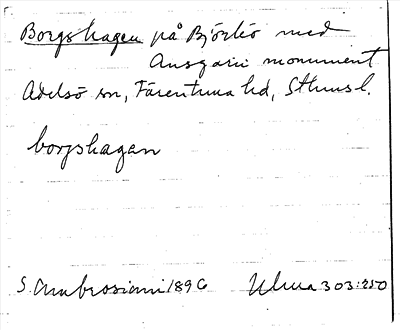 Borgshagen på Björkö med
Ansgarii monument
Adelsö sn, Färentuna hd, Sthms l.
borgshagan
S. Ambrosiani 1896 Ulma 303:250